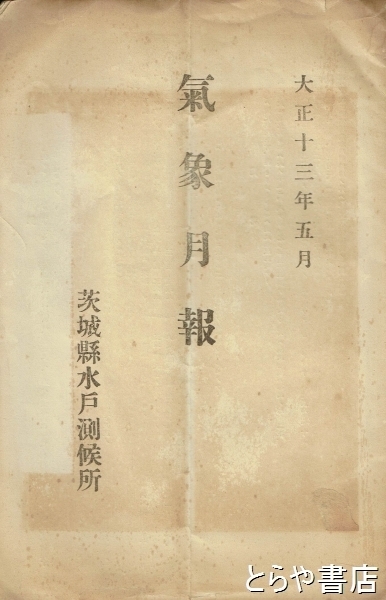 大正十三年五月
氣象月報
茨城縣水戸測候所
とらや書店